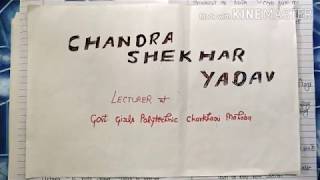 Made with KINEMASTER
CHANDRA
SHEKHAR
YADAV
LECTURER at
Govt Girls Polytechnic Charkhari Mahoba